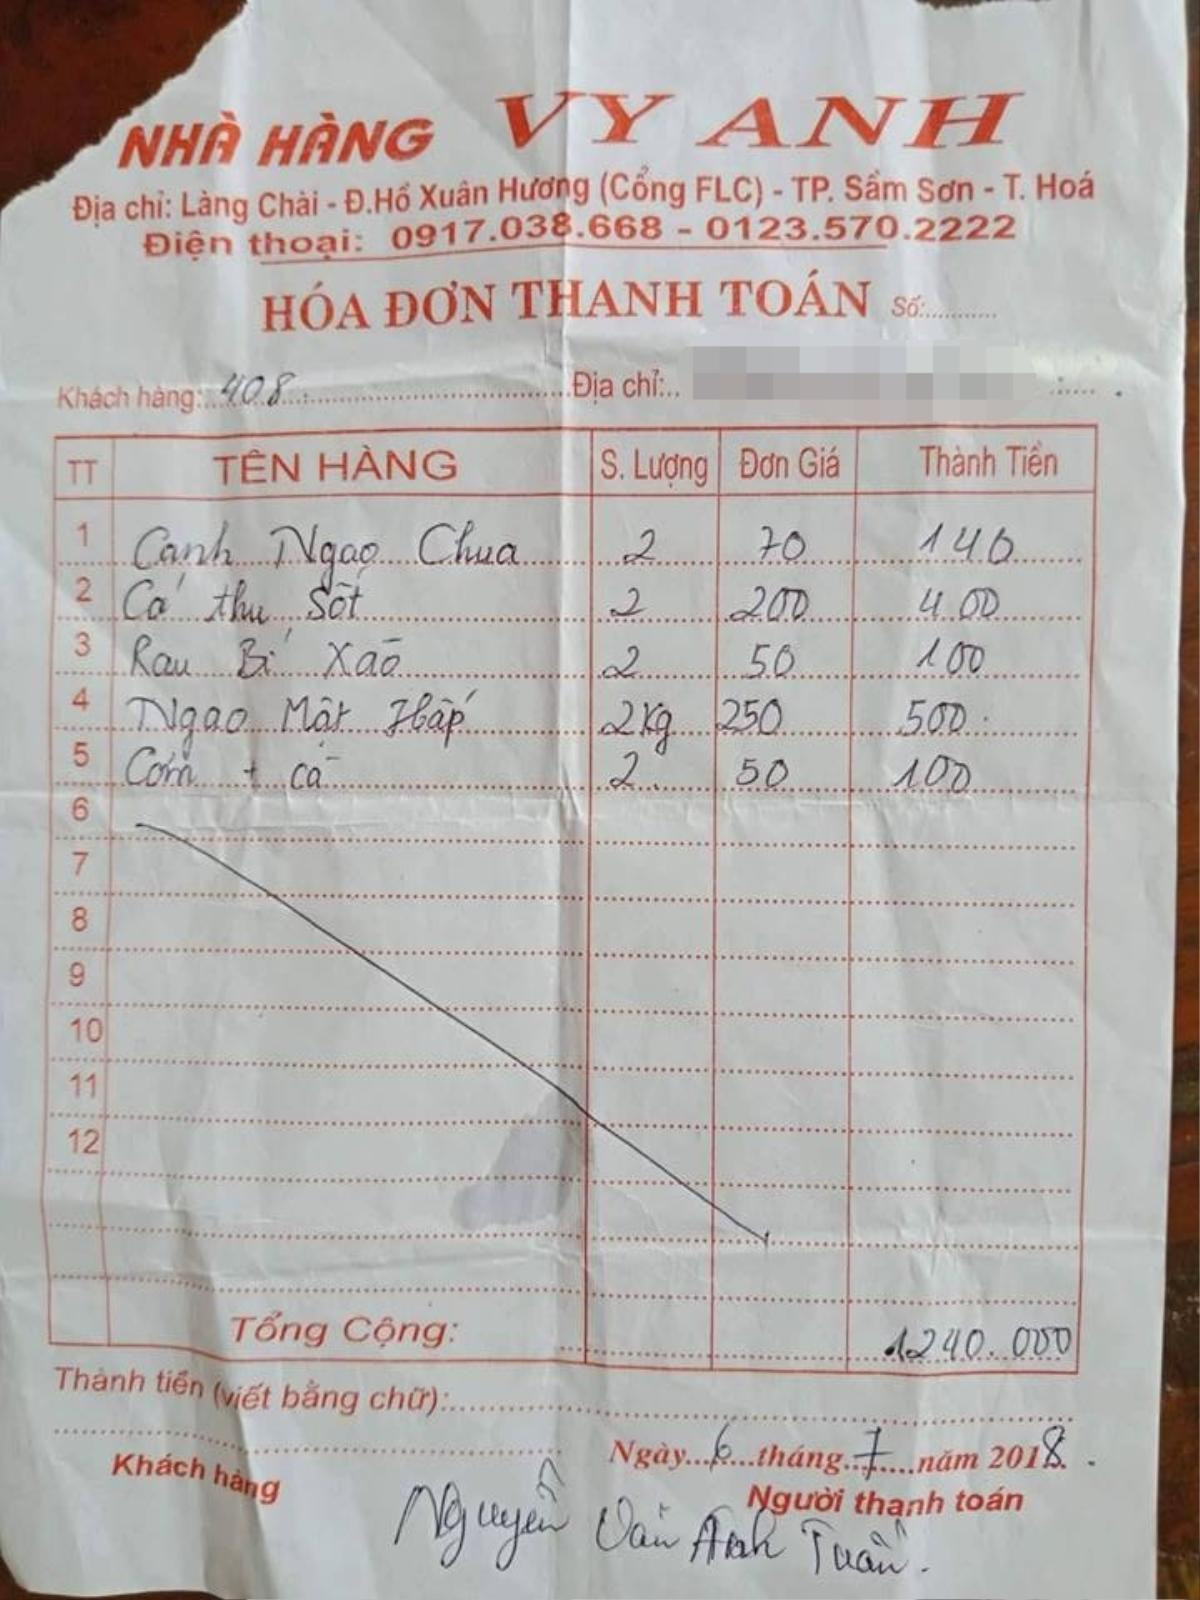 NHÀ HÀNG VY ANH
Địa chỉ: Làng Chài - Đ.Hồ Xuân Hương (Cổng FLC) - TP. Sầm Sơn - T. Hoá
Điện thoại: 0917.038.668 - 0123.570.2222
HÓA ĐƠN THANH TOÁN Số:............
Khách hàng: 408 Địa chỉ:
TT TÊN HÀNG S. Lượng Đơn Giá Thành Tiền
1 Canh Ngao Chua 2 70 140
2 Cá thu Sốt 2 200 400
3 Rau Bí Xào 2 50 100
4 Ngao Mật Hấp 2kg 250 500
5 Cơm + cà 2 50 100
6
7
8
9
10
11
12
Tổng Cộng: 1240.000
Thành tiền (viết bằng chữ):
Ngày 6 tháng 7 năm 2018
Khách hàng Người thanh toán
Nguyễn Văn Anh Tuấn.